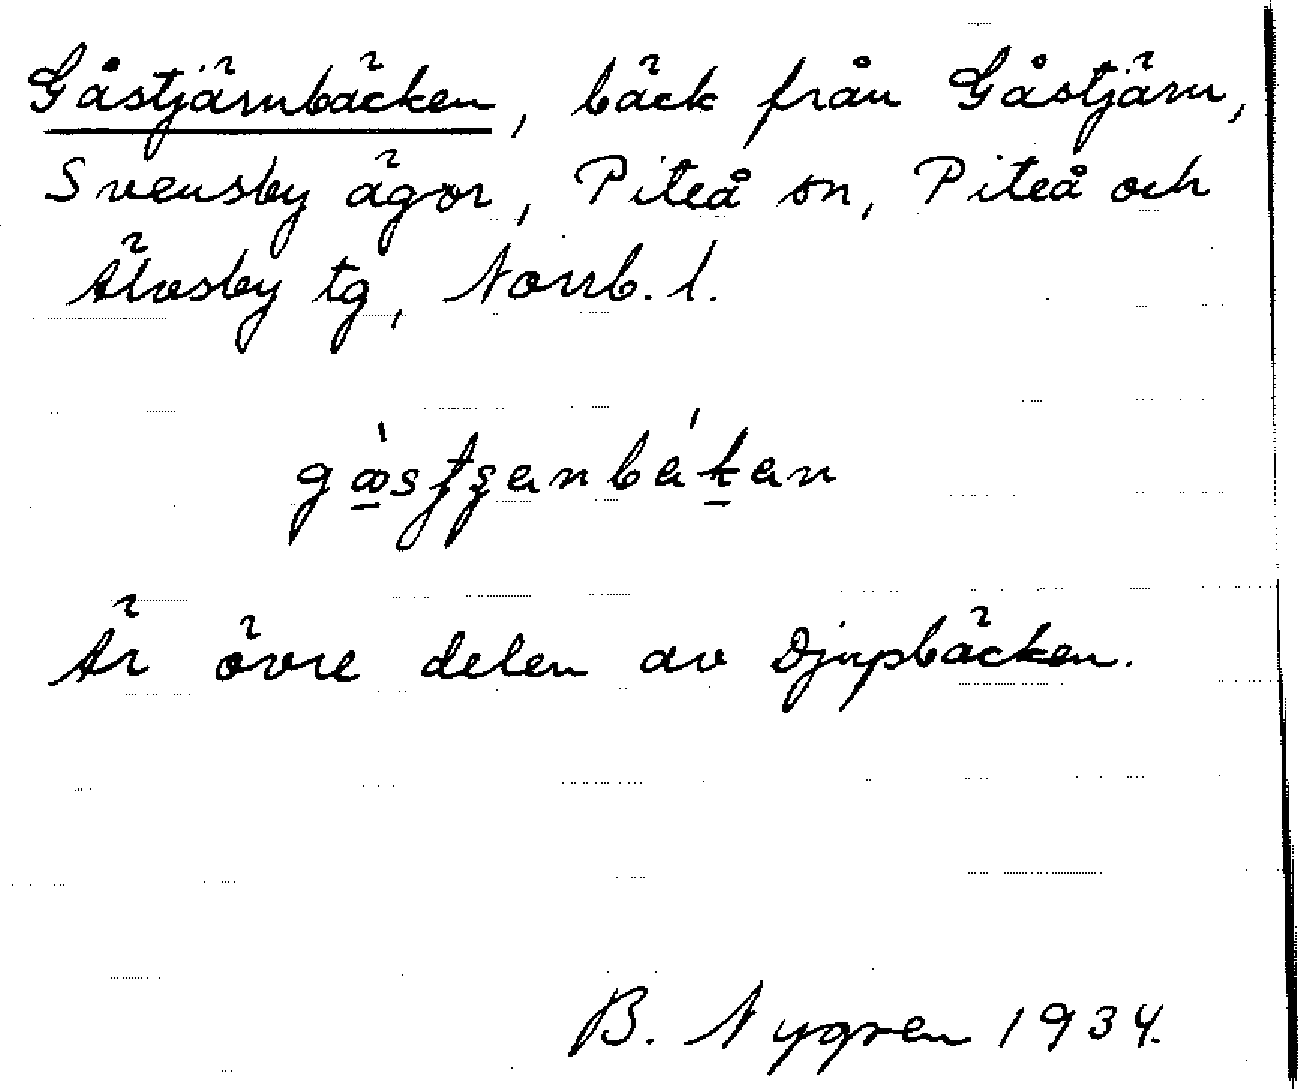 Gåstjärnbäcken, bäck från Gåstjärn,
Svensby ägor, Piteå sn, Piteå och
Älvsby tg, Norrb. l.
Är övre delen av Djupbäcken.
B. Nygren 1934.